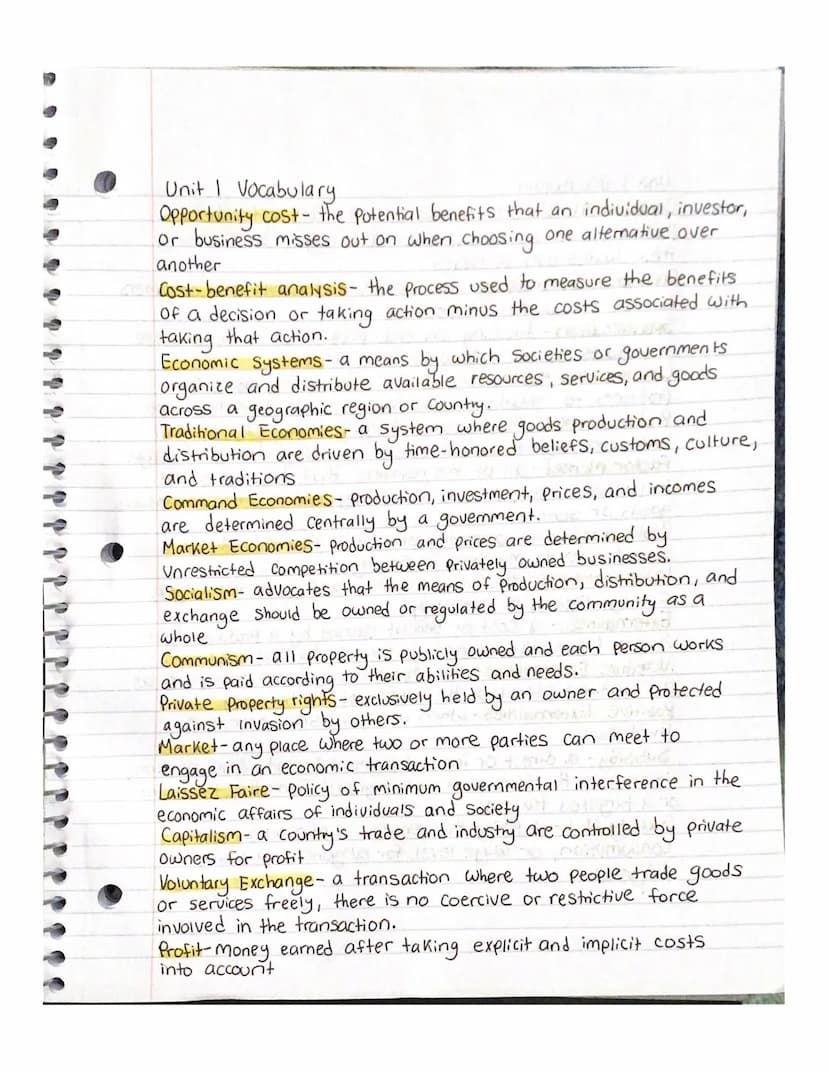 Unit 1 Vocabulary
Opportunity cost- the potential benefits that an individual, investor,
or business misses out on when choosing one alternative over
another
Cost-benefit analysis- the process used to measure the benefits
of a decision or taking action minus the costs associated with
taking that action.
Economic Systems- a means by which societies or governments
organize and distribute available resources, services, and goods
across a geographic region or country.
Traditional Economies- a system where goods production and
distribution are driven by time-honored beliefs, customs, culture,
and traditions
Command Economies- production, investment, prices, and incomes
are determined centrally by a government.
Market Economies- production and prices are determined by
unrestricted competition between privately owned businesses.
Socialism- advocates that the means of production, distribution, and
exchange should be owned or regulated by the community as a
whole
Communism- all property is publicly owned and each person works
and is paid according to their abilities and needs.
Private Property rights- exclusively held by an owner and protected
against invasion by others.
Market- any place where two or more parties can meet to
engage in an economic transaction
Laissez Faire- policy of minimum governmental interference in the
economic affairs of individuals and society
Capitalism- a country's trade and industry are controlled by private
owners for profit
Voluntary Exchange- a transaction where two people trade goods
or services freely, there is no coercive or restrictive force
involved in the transaction.
Profit- money earned after taking explicit and implicit costs
into account